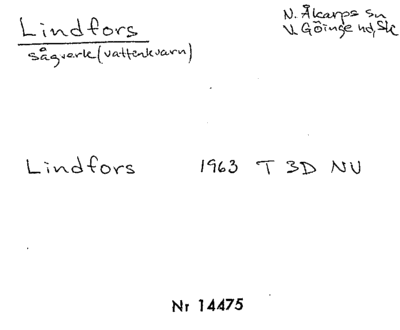 Lindfors
sågverk (vattenkvarn)
N. Åkarps sn
V. Göinge hd, Sk
Lindfors 1963 T 3D NV
Nr 14475